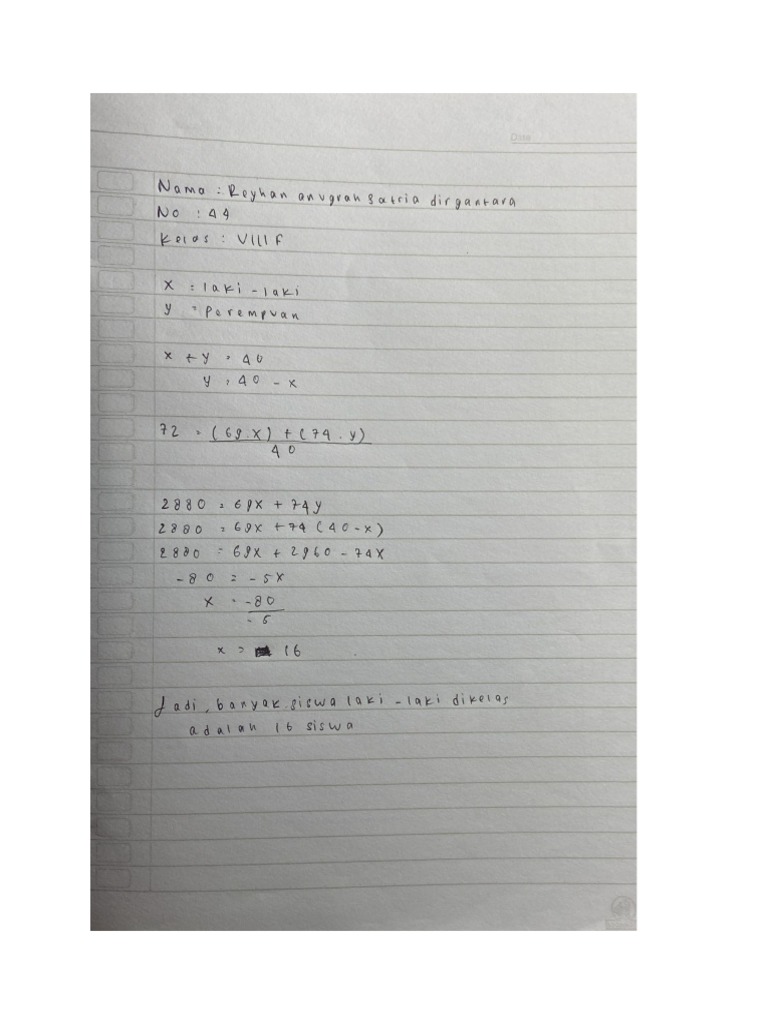 Date
Nama : Reyhan anugrah satria dirgantara
No : 44
Kelas : VIII F
x = laki - laki
y = Perempuan
x + y = 40
y = 40 - x
72 = (69.x) + (74 . y)
40
2880 = 69x + 74y
2880 = 69x + 74 (40 - x)
2880 = 69x + 2960 - 74x
-80 = - 5x
x = -80
- 5
x = 16
Jadi, banyak siswa laki - laki dikelas
adalah 16 siswa